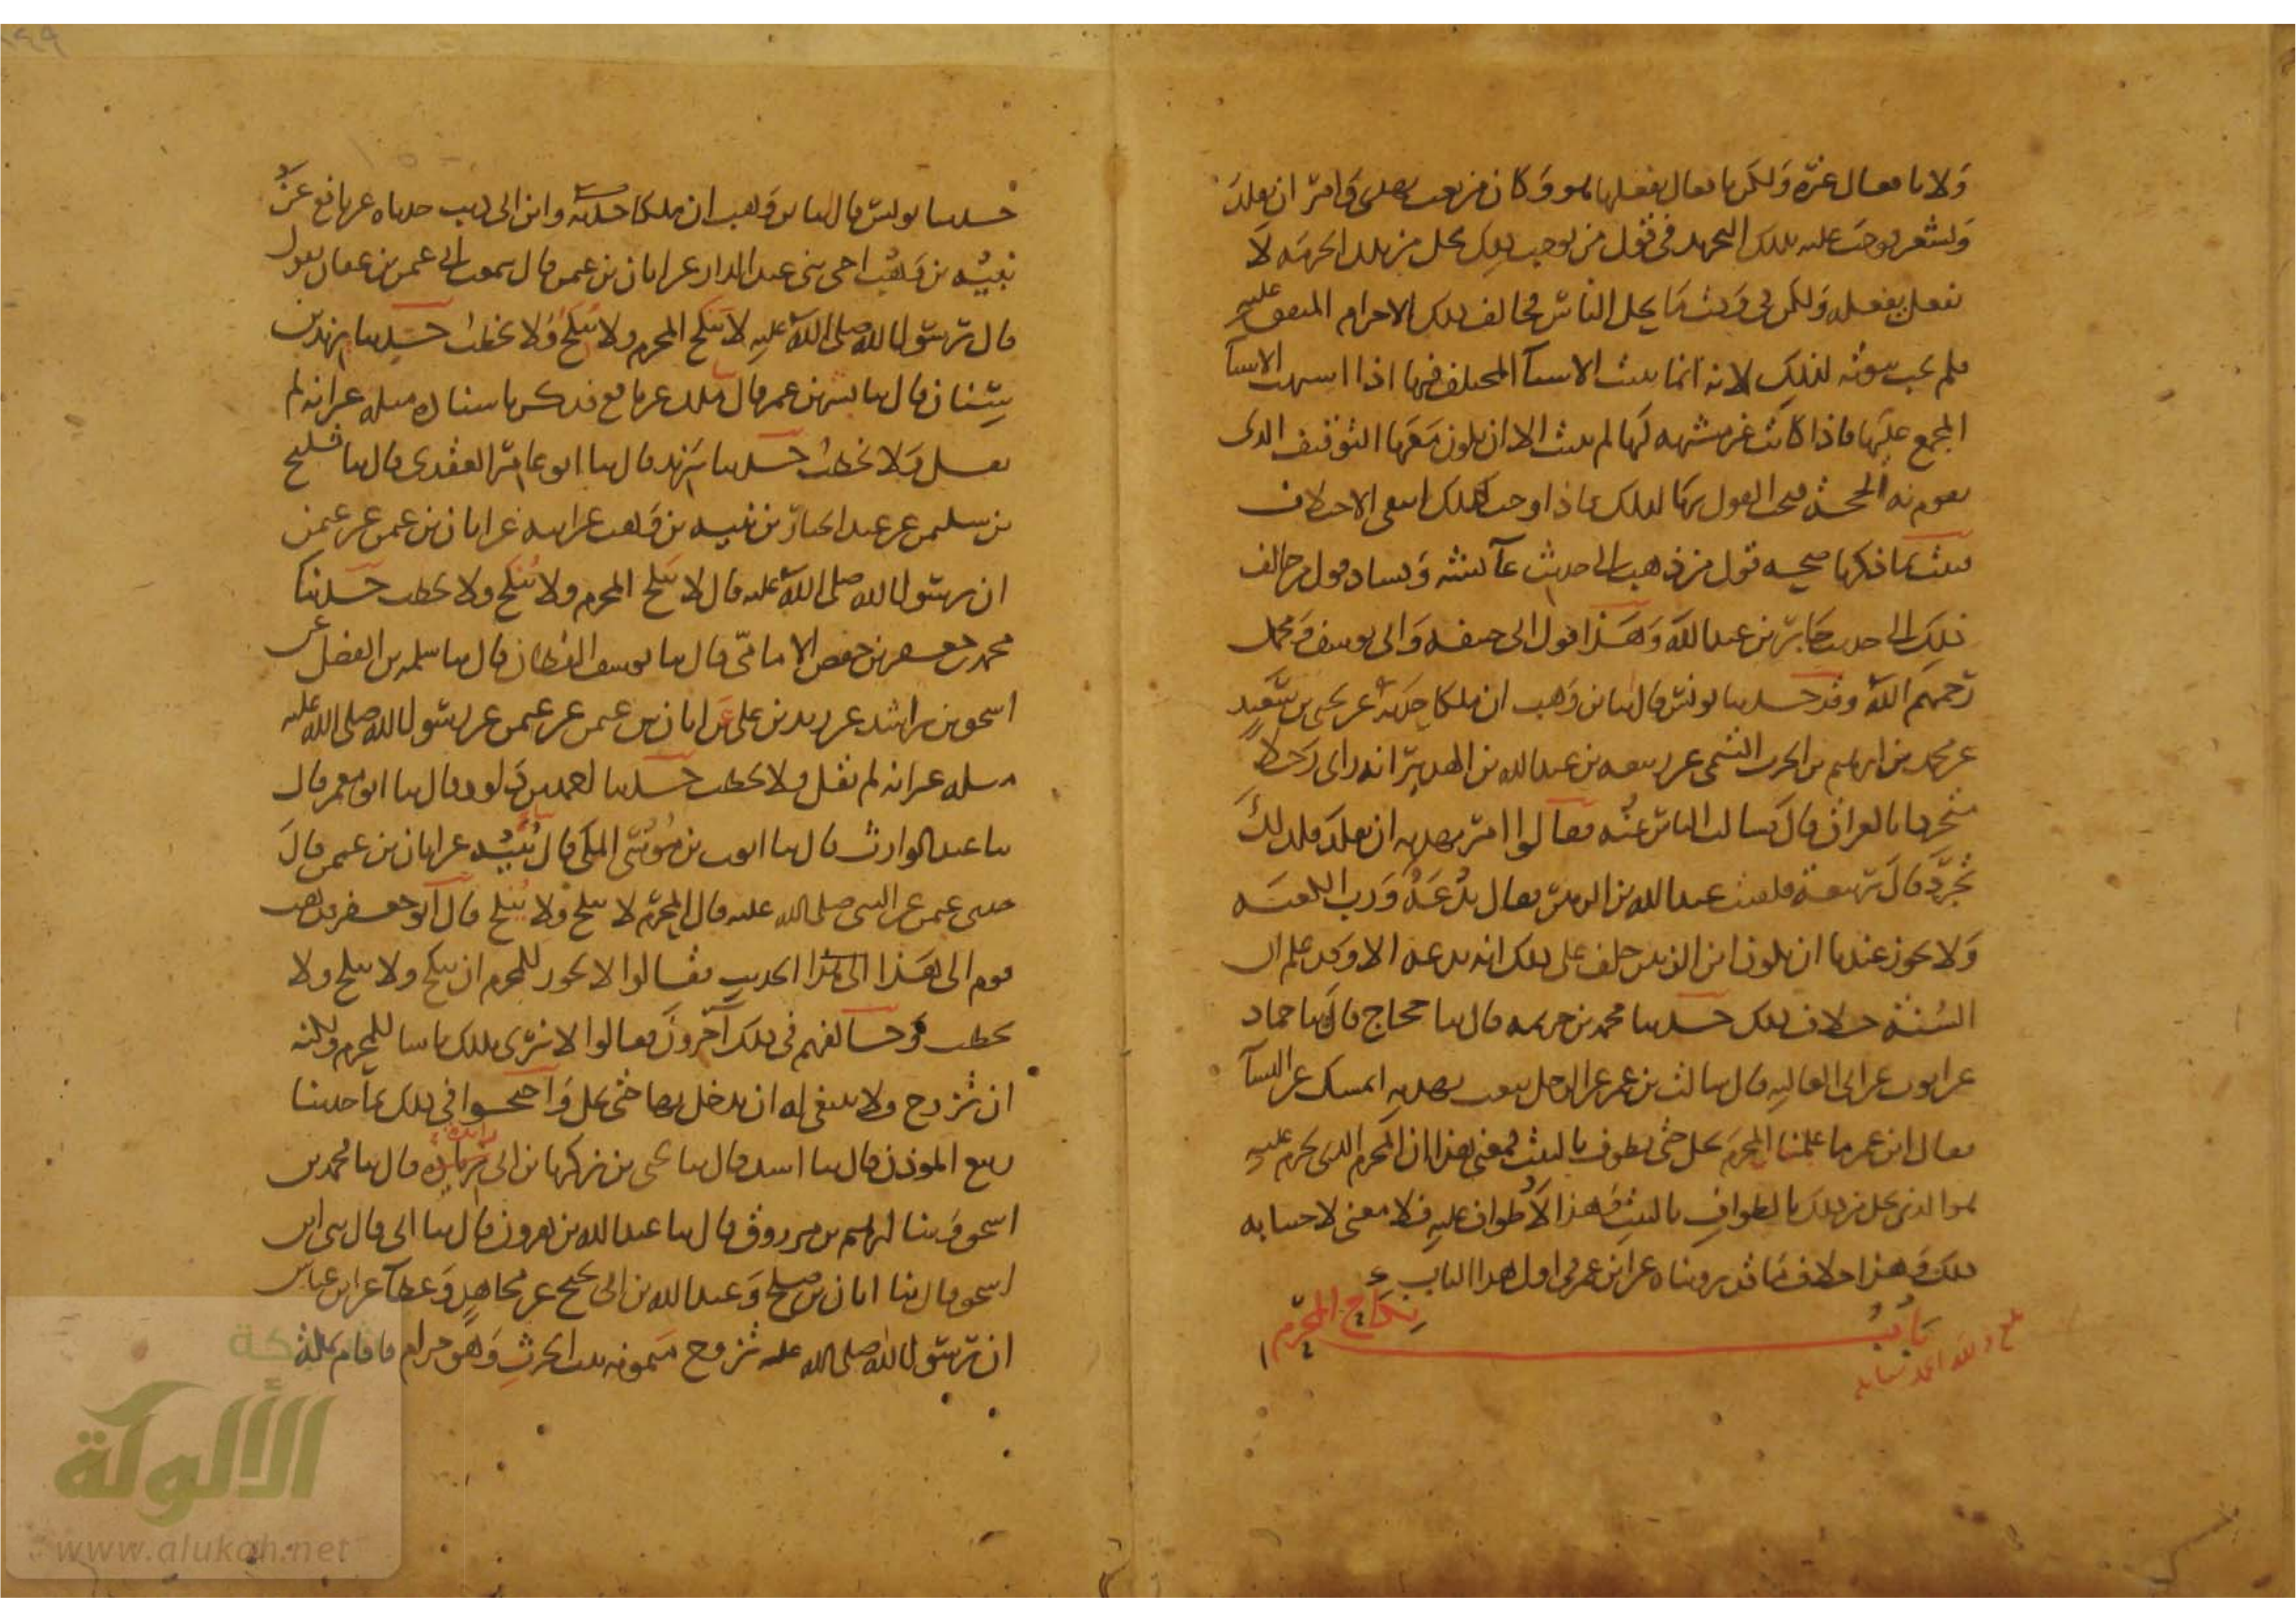 ولا بأفعال غيره ولكن بأفعال يفعلها هو وكان من بعث بهدي وأمر ان يقلد
ويشعر فوجب عليه بذلك التجريد في قول من يوجب ذلك يحل من تلك الحرمة لا
بفعل يفعله ولكن في وقت ما يحل الناس فخالف ذلك الاحرام المتفق عليه
فلم يجب ثبوته لذلك لانه انما يثبت الاشيا المختلف فيها اذا اشبهت الاشيا
المجمع عليها فاذا كانت غير مشبهة لها لم يثبت الا ان يكون معها التوقيف الذي
يقوم به الحجة فيجب القول بها لذلك فاذا وجب ذلك انتفى الاختلاف
فثبت بما ذكرنا صحة قول من ذهب الى حديث عائشة وفساد قول من خالف
ذلك الى حديث جابر بن عبد الله وهذا قول ابي حنيفه وابي يوسف ومحمد
رحمهم الله وقد حدثنا يونس قال ثنا بن وهب ان ملكا حدثه عن يحيى بن سعيد
عن محمد بن ابرهيم بن الحرث التيمي عن ربيعه بن عبد الله بن الهدير انه راى رجلا
متجردا بالعراق قال فسالت الناس عنه فقالوا امر بهديه ان يقلد فلذلك
تجرد قال ربيعة فلقيت عبد الله بن الزبير فقال بدعة ورب الكعبه
ولا يجوز عندنا ان يكون ابن الزبير حلف على ذلك انه بدعه الا وقد علم ان
السنة خلاف ذلك حدثنا محمد بن خزيمه قال ثنا حجاج قال ثنا حماد
عن ايوب عن ابي العاليه قال سالت بن عمر عن الرجل يبعث بهديه ايمسك عن النسآ
فقال ابن عمر ما علمنا المحرم يحل حتى يطوف بالبيت فمعنى هذا ان المحرم الذي يحرم عليه
هو الذي يحل من ذلك بالطواف بالبيت فهذا لا طواف عليه فلا معنى لاجتنابه
ذلك وهذا خلاف ما قد رويناه عن ابن عمر في اول هذا الباب
باب نكاح المحرم
حدثنا يونس قال ثنا بن وهب ان ملكا حدثه وابن ابي ذيب حدثاه عن نافع عن
نبيه بن وهب اخي بني عبد الدار عن ابان بن عثمن قال سمعت ابي عثمن بن عفان يقول
قال رسول الله صلى الله عليه لا ينكح المحرم ولا ينكح ولا يخطب حدثنا يزيد بن
سنان قال ثنا بشر بن عمر قال ثنا ملك عن نافع فذكر باسناده مثله غير انه لم
يقل ولا يخطب حدثنا يزيد قال ثنا ابو عامر العقدي قال ثنا فليح
بن سليمن عن عبد الجبار بن نبيه بن وهب عن ابيه عن ابان بن عثمن عن عثمن
ان رسول الله صلى الله عليه قال لا ينكح المحرم ولا ينكح ولا يخطب حدثنا
محمد بن جعفر بن حفص الامامي قال ثنا يوسف القطان قال ثنا سلمه بن الفضل عن
اسحق بن راشد عن زيد بن علي عن ابان بن عثمن عن عثمن عن رسول الله صلى الله عليه
مثله غير انه لم يقل ولا يخطب حدثنا احمد بن داود قال ثنا ابو معمر قال
ثنا عبد الوارث قال ثنا ايوب بن موسى المكي قال نبيه عن ابان بن عثمن قال
حدثني عثمن عن النبي صلى الله عليه قال المحرم لا ينكح ولا ينكح قال ابو جعفر فذهب
قوم الى هذا الحديث فقالوا لا يجوز للمحرم ان ينكح ولا ينكح ولا
يخطب وخالفهم في ذلك اخرون فقالوا لا نرى بذلك باسا للمحرم ولكنه
ان تزوج ولا ينبغي له ان يدخل بها حتى يحل واحتجوا في ذلك بما حدثنا
ربيع الموذن قال ثنا اسد قال ثنا يحيى بن زكريا بن ابي زايدة قال ثنا محمد بن
اسحق وثنا ابرهيم بن مرزوق قال ثنا عبد الله بن هرون قال ثنا ابي قال ثني ابن
اسحق قال ثنا ابان بن صلح وعبد الله بن ابي نجيح عن مجاهد وعطآ عن ابن عباس
ان رسول الله صلى الله عليه تزوج ميمونه بنت الحرث وهو حرام فاقام بمكة
شبكة
الألوكة
www.alukah.net